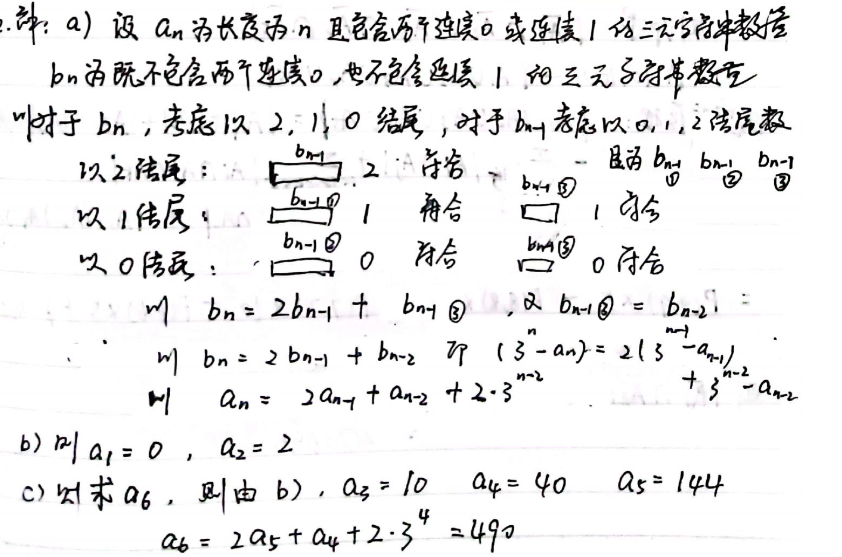 2.解: a) 设 an为长度为n 且包含两个连续0或连续1的三元字符串数量
bn为既不包含两个连续0,也不包含连续1的三元字符串数量
则对于bn,考虑以2,1,0结尾,对于bn-1考虑以0,1,2结尾数
以2结尾: bn-1 2 符合 且为 bn-1① bn-1② bn-1③
以1结尾: bn-1① 1 符合 bn-1③ 1 符合
以0结尾: bn-1② 0 符合 bn-1③ 0 符合
则 bn = 2bn-1 + bn-1③ ,又 bn-1③ = bn-2.
则 bn = 2bn-1 + bn-2 即 (3^n - an) = 2(3^n-1 - an-1) + 3^n-2 - an-2
则 an = 2an-1 + an-2 + 2·3^n-2
b) 则 a1 = 0 , a2 = 2
c) 求a6 , 则由b), a3 = 10 a4 = 40 a5 = 144
a6 = 2a5 + a4 + 2·3^4 = 490